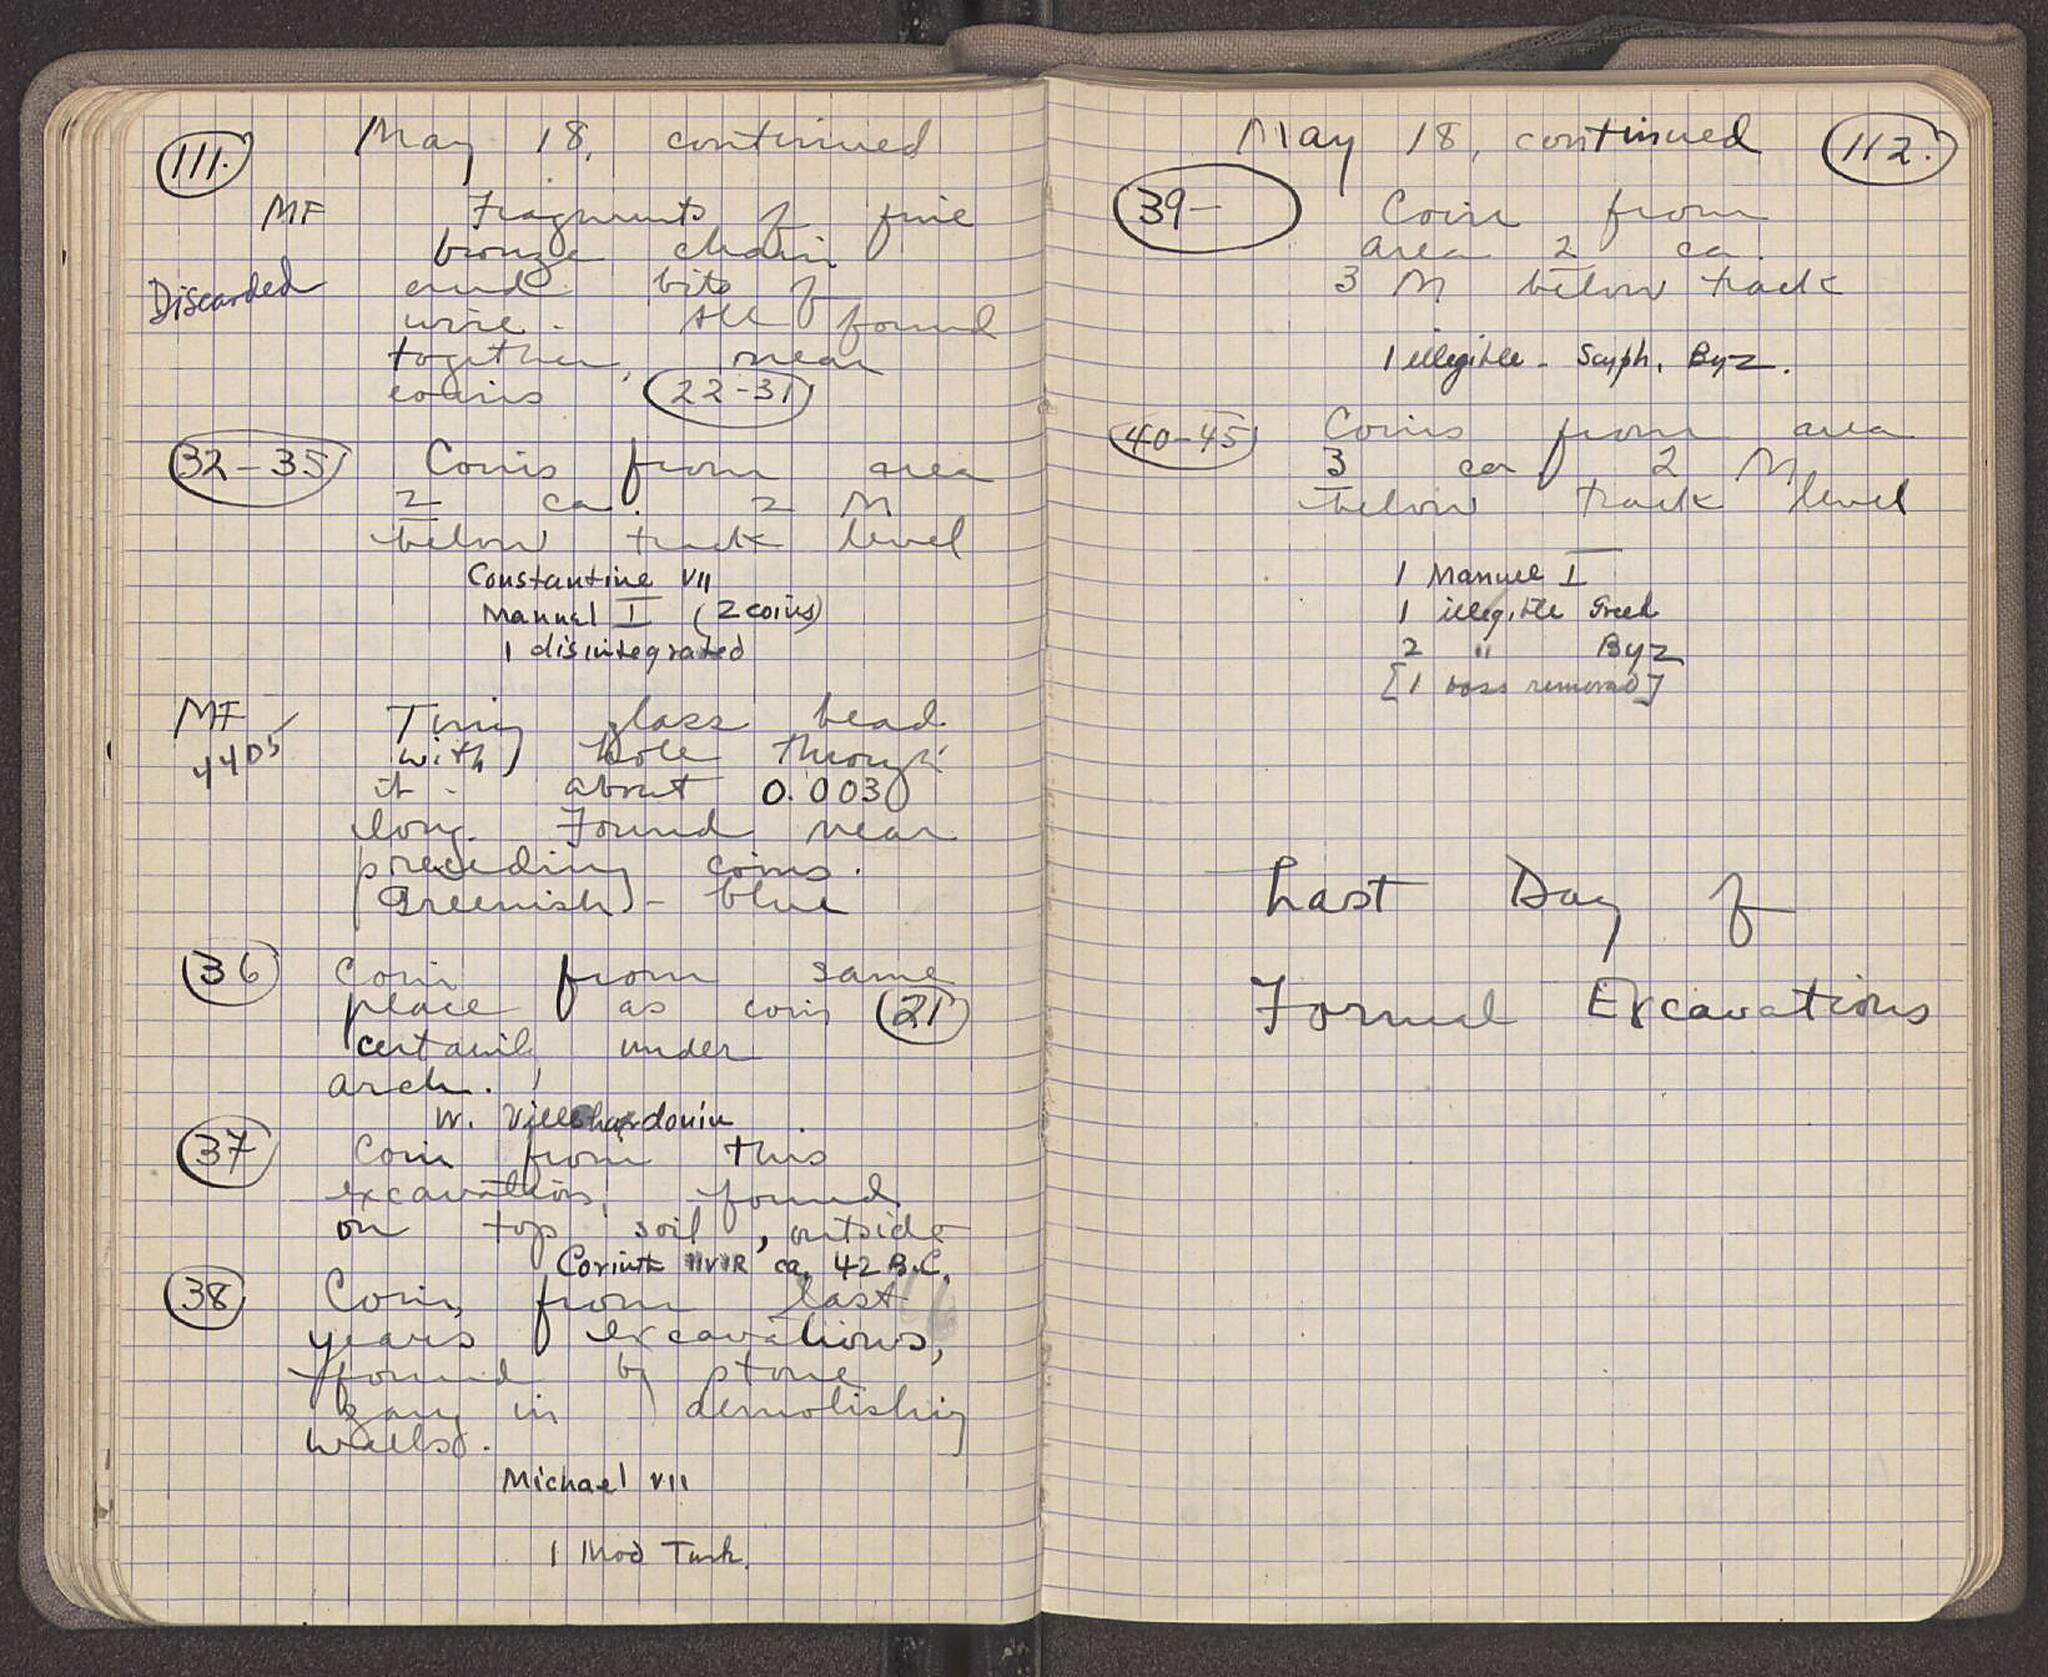 111.
May 18, continued
MF Fragments of fine
bronze chain
Discarded and bits of
wire - All found
together, near
coins 22-31
32-35 Coins from area
2 ca. 2 M
below track level
Constantine VII
Manuel I (2 coins)
1 disintegrated
MF Tiny glass bead
4405 with hole through
it - about 0.003
long. Found near
preceding coins.
Greenish - blue
36 Coin from same
place as coin 21
certainly under
arch.
W. Villehardouin
37 Coin from this
excavation, found
on top soil, outside
Corinth IIVIR ca. 42 B.C.
38 Coin, from last
years excavations,
found by stone
gang in demolishing
walls.
Michael VII
1 Mod Turk.
May 18, continued
112.
39- Coin from
area 2 ca.
3 M below track
1 illegible - Scyph. Byz.
40-45 Coins from area
3 ca 2 M
below track level
1 Manuel I
1 illegible Greek
2 " Byz
[1 removed]
Last Day of
Formal Excavations